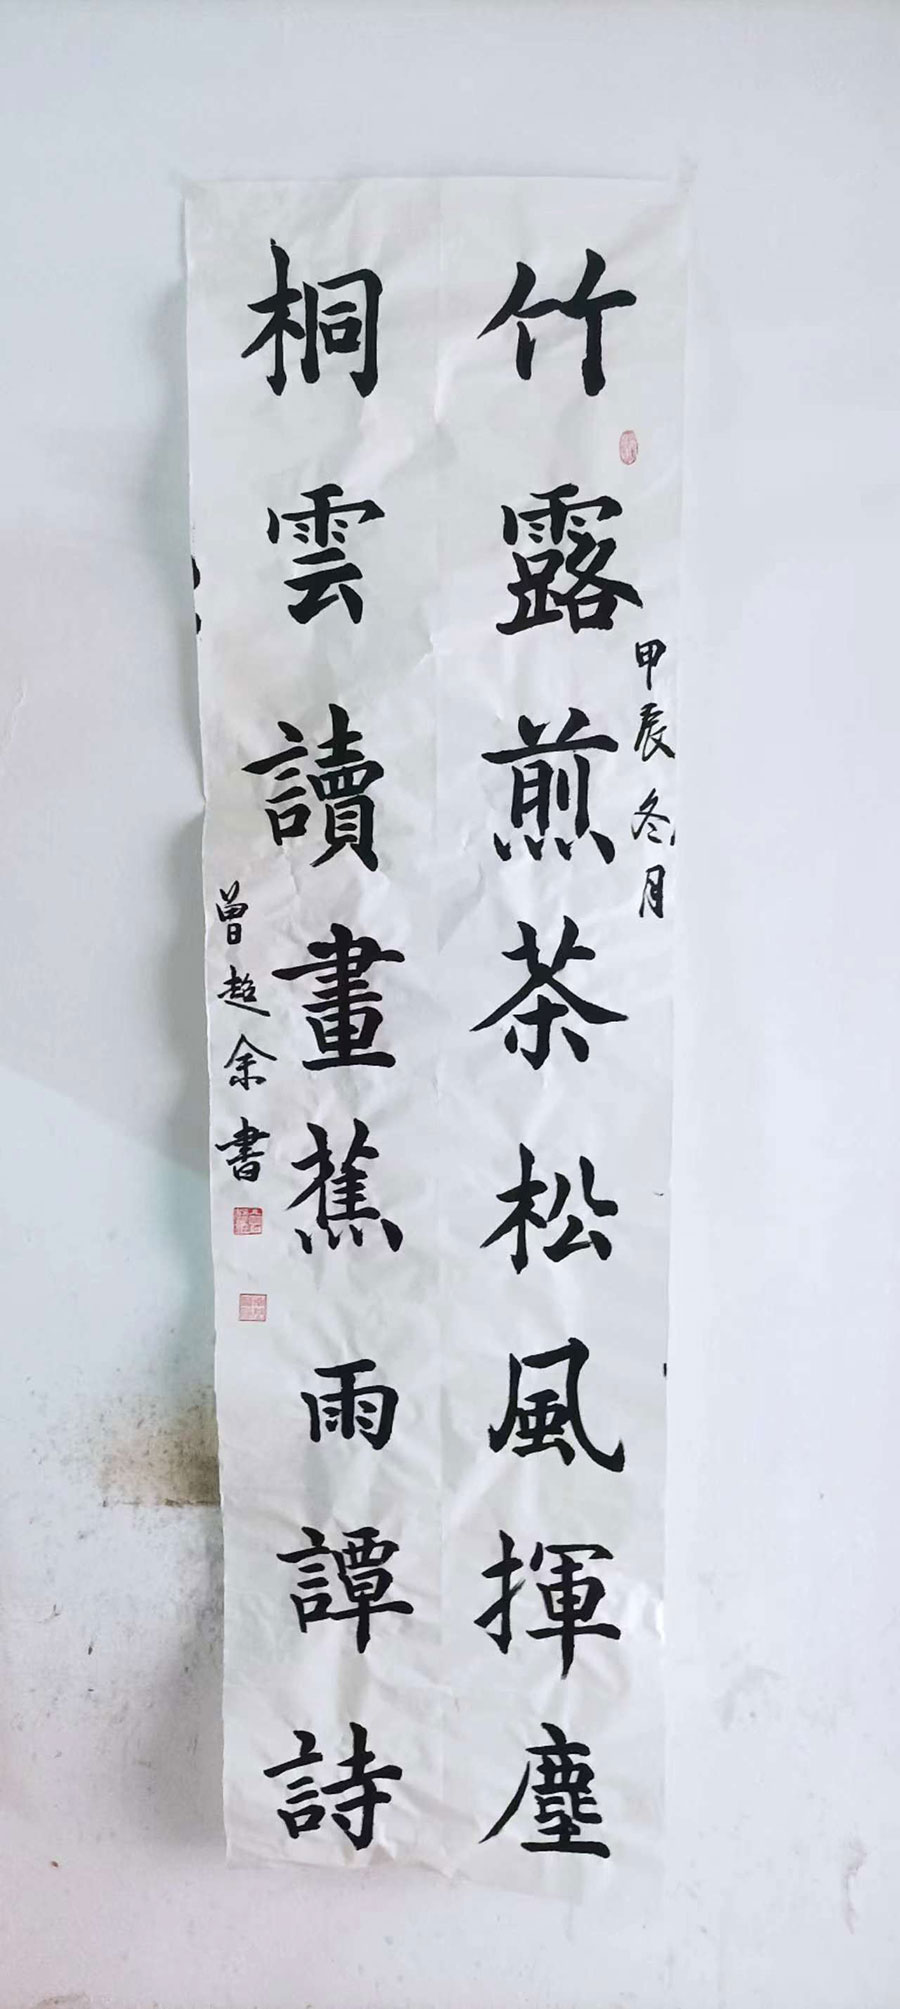 竹露煎茶松風揮塵
桐雲讀畫蕉雨譚詩
甲辰冬月
曾超余書